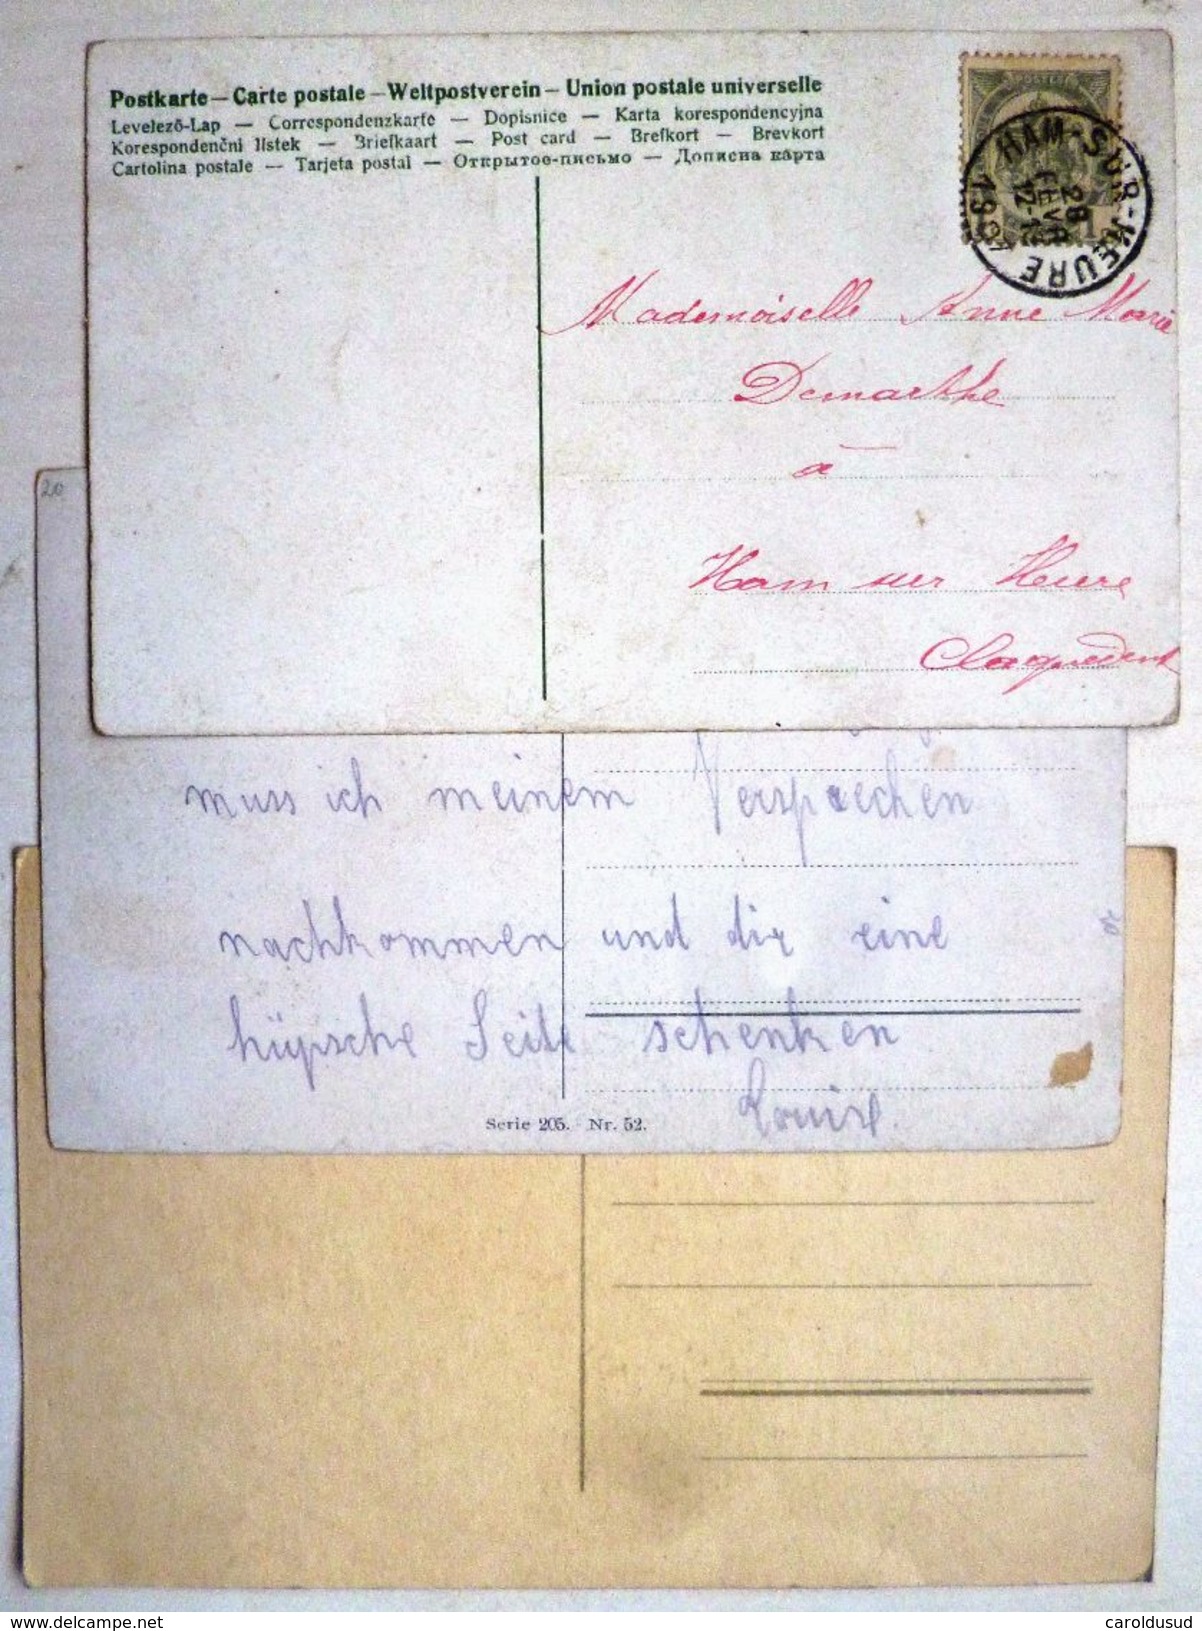 Postkarte — Carte postale — Weltpostverein — Union postale universelle
Levelező-Lap — Correspondenzkarte — Dopisnice — Karta korespondencyjna
Korespondenční lístek — Briefkaart — Post card — Brefkort — Brevkort
Cartolina postale — Tarjeta postal — Открытое-письмо — Дописна карта
HAM-SUR-HEURE
28
FEVR
12-1
1907
Mademoiselle Anne Marie
Demarthe
à
Ham sur Heure
20
muss ich meinem Versprechen
nachkommen und dir eine
hüpsche Seite schenken
Louise.
Serie 205. Nr. 52.
caroldusud